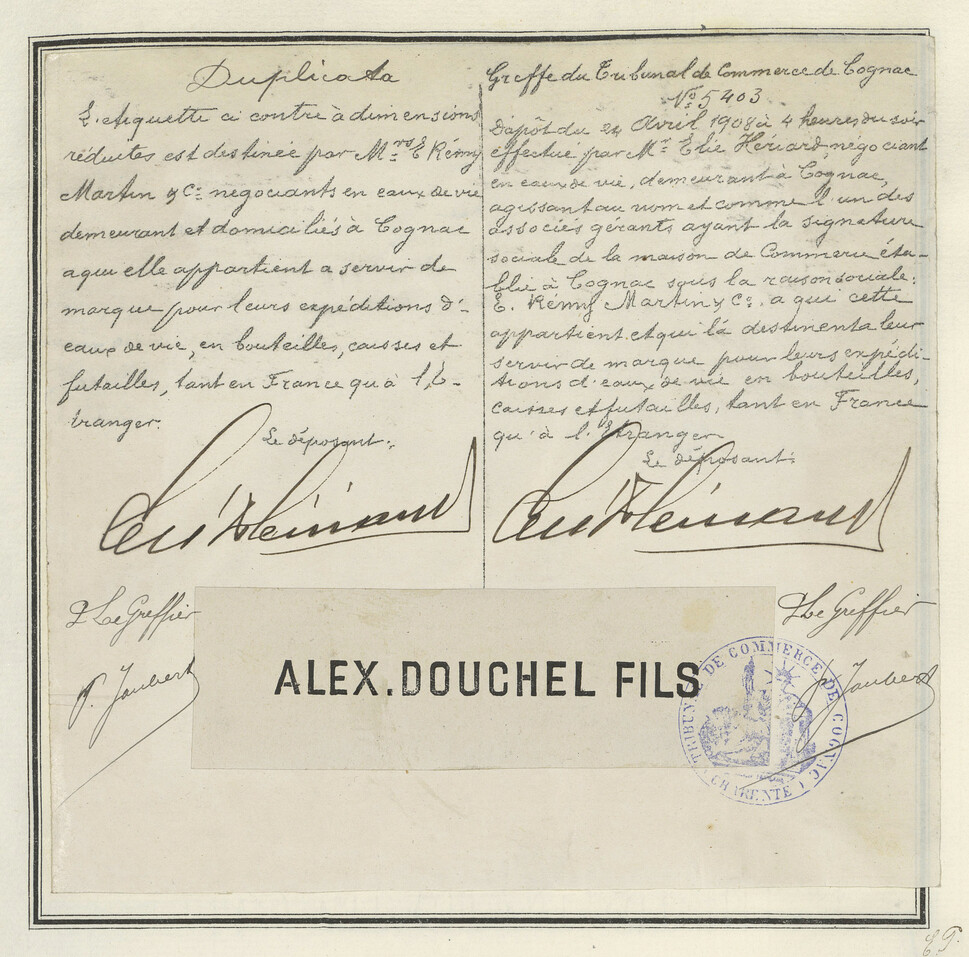 Duplicata
L'etiquette ci contre à dimensions
réduites est destinée par Mrs E Remy
Martin & Co. negociants en eaux de vie
demeurant et domiciliés à Cognac
a qui elle appartient a servir de
marque pour leurs expéditions d'-
eaux de vie, en bouteilles, caisses et
futailles, tant en France qu'à l'E-
tranger.
Le déposant:
P Le Greffier
P. Joubert
Greffe du Tribunal de Commerce de Cognac
No. 5403
Dépôt du 24 Avril 1908 à 4 heures du soir
effectué par Mr Elie Hériard, négociant
en eaux de vie, demeurant à Cognac,
agissant au nom et comme l'un des
associés gérants ayant la signature
sociale de la maison de Commerce éta-
blie à Cognac sous la raison sociale:
E. Rémy Martin & Co. a qui cette
appartient et qui la destinent a leur
servir de marque pour leurs expédi-
tions d'eaux de vie en bouteilles,
caisses et futailles, tant en France
qu'à l'Etranger
Le déposant:
P Le Greffier
P. Joubert
ALEX.DOUCHEL FILS
TRIBUNAL DE COMMERCE DE COGNAC
(CHARENTE)